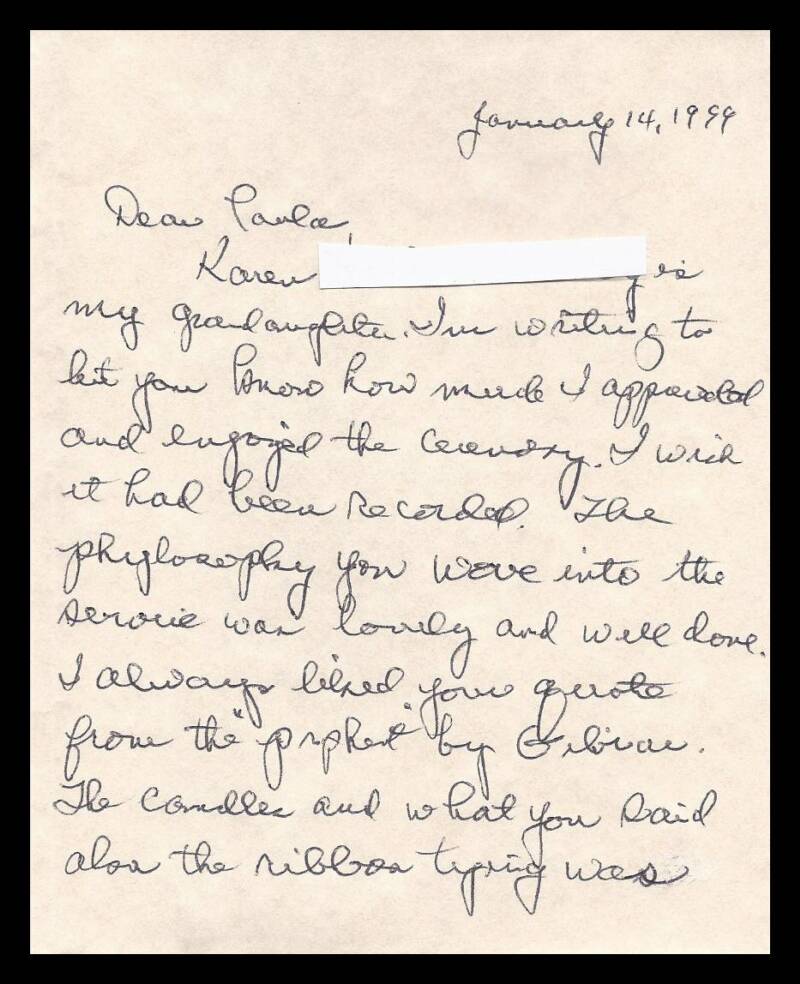 January 14, 1999
Dear Paula,
Karen is
my grandaughter. I'm writing to
let you know how much I
and enjoyed the ceremony. I wish
it had been recorded. The
phylosophy you wove into the
service was lovely and well done.
I always liked your quote
from the "prophet" by Gibran.
The candles and what you said
also the ribbon tying was